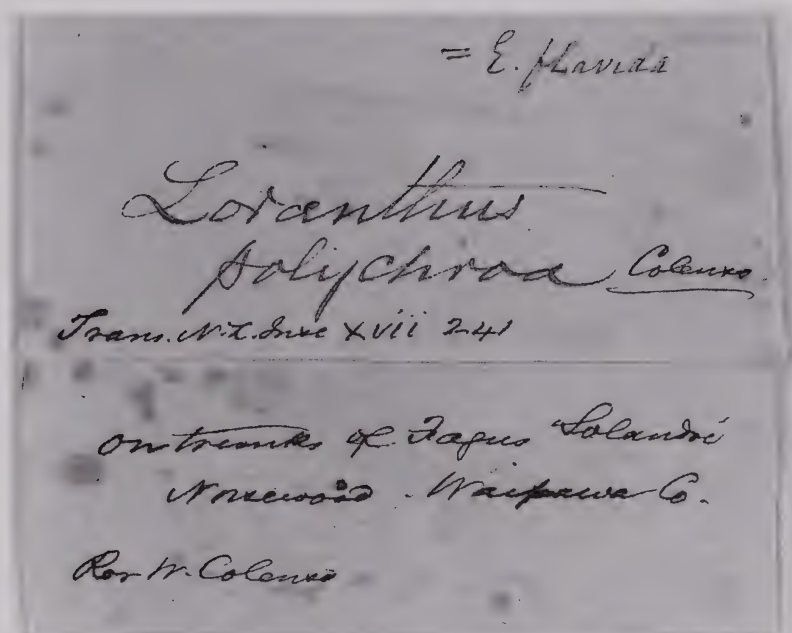 = E. flavida
Loranthus
polychroa Colenso.
Trans. N.Z. Inst XVII 241
on trunks of Fagus Solandri
Norsewood. Waipawa Co.
Rev W. Colenso